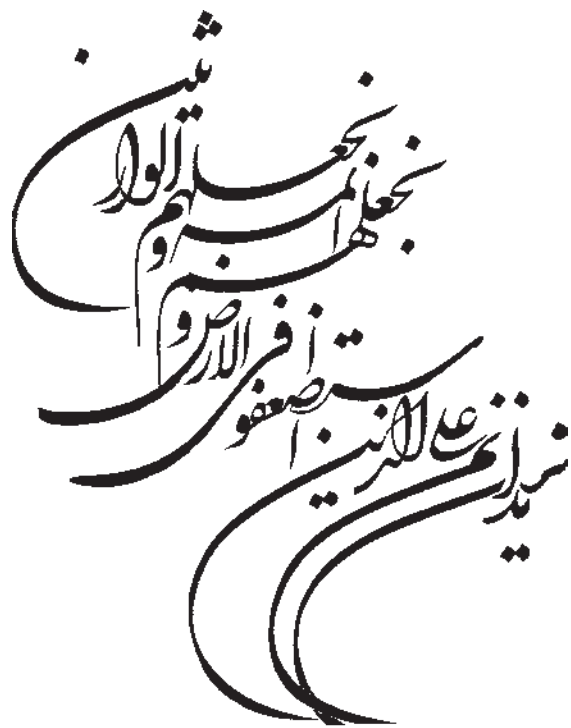 نرید ان نمن علی الذین
استضعفوا فی الارض و
نجعلهم ائمه و
نجعلهم الوارثین